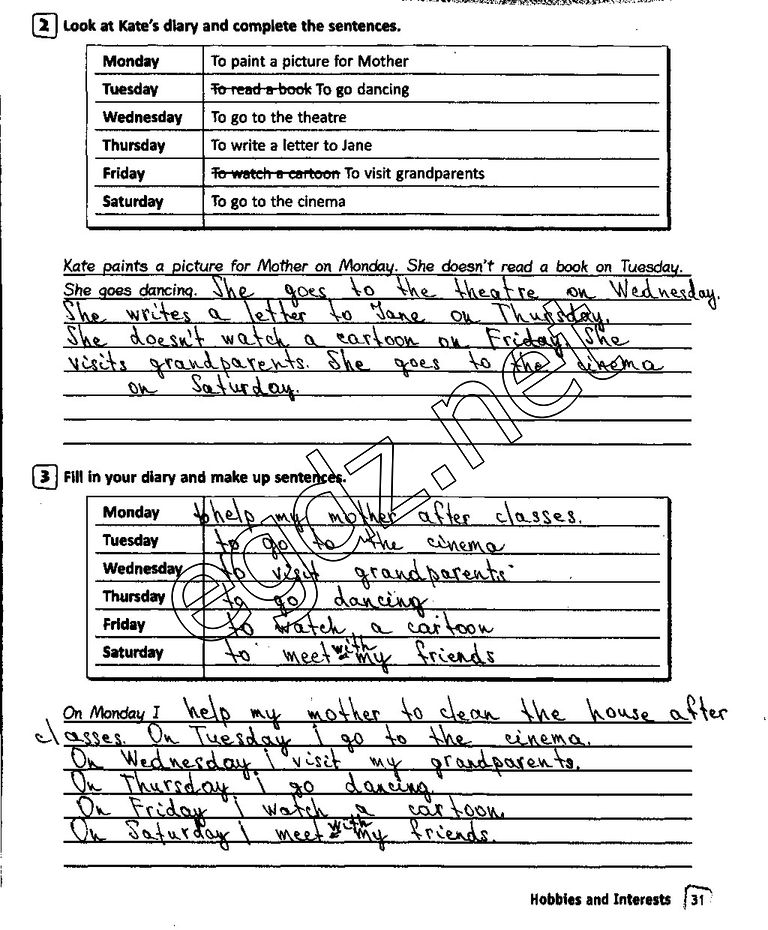 2 Look at Kate's diary and complete the sentences.
Monday To paint a picture for Mother
Tuesday To read a book To go dancing
Wednesday To go to the theatre
Thursday To write a letter to Jane
Friday To watch a cartoon To visit grandparents
Saturday To go to the cinema
Kate paints a picture for Mother on Monday. She doesn't read a book on Tuesday.
She goes dancing. She goes to the theatre on Wednesday.
She writes a letter to Jane on Thursday.
She doesn't watch a cartoon on Friday. She
visits grandparents. She goes to the cinema
on Saturday.
egdz.net
3 Fill in your diary and make up sentences.
Monday to help my mother after classes.
Tuesday to go to the cinema
Wednesday to visit grandparents
Thursday to go dancing
Friday to watch a cartoon
Saturday to meet with my friends
On Monday I help my mother to clean the house after
classes. On Tuesday i go to the cinema.
On Wednesday i visit my grandparents.
On Thursday i go dancing.
On Friday i watch a cartoon.
On Saturday i meet with my friends.
Hobbies and Interests 31